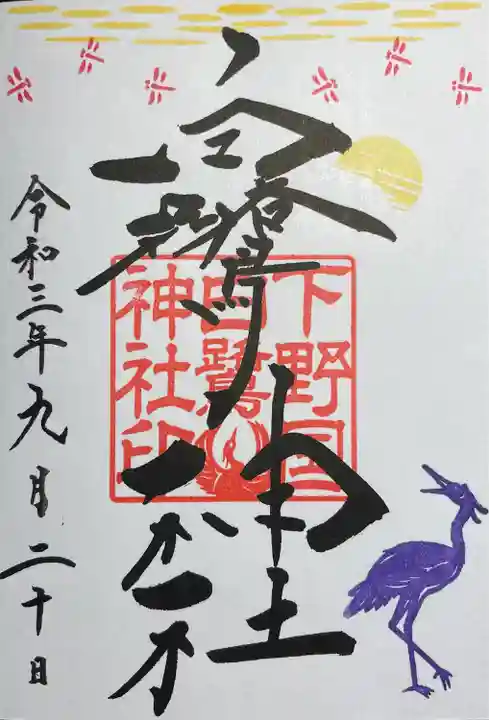 白鷺神社
下野国
白鷺
神社印
令和三年九月二十日